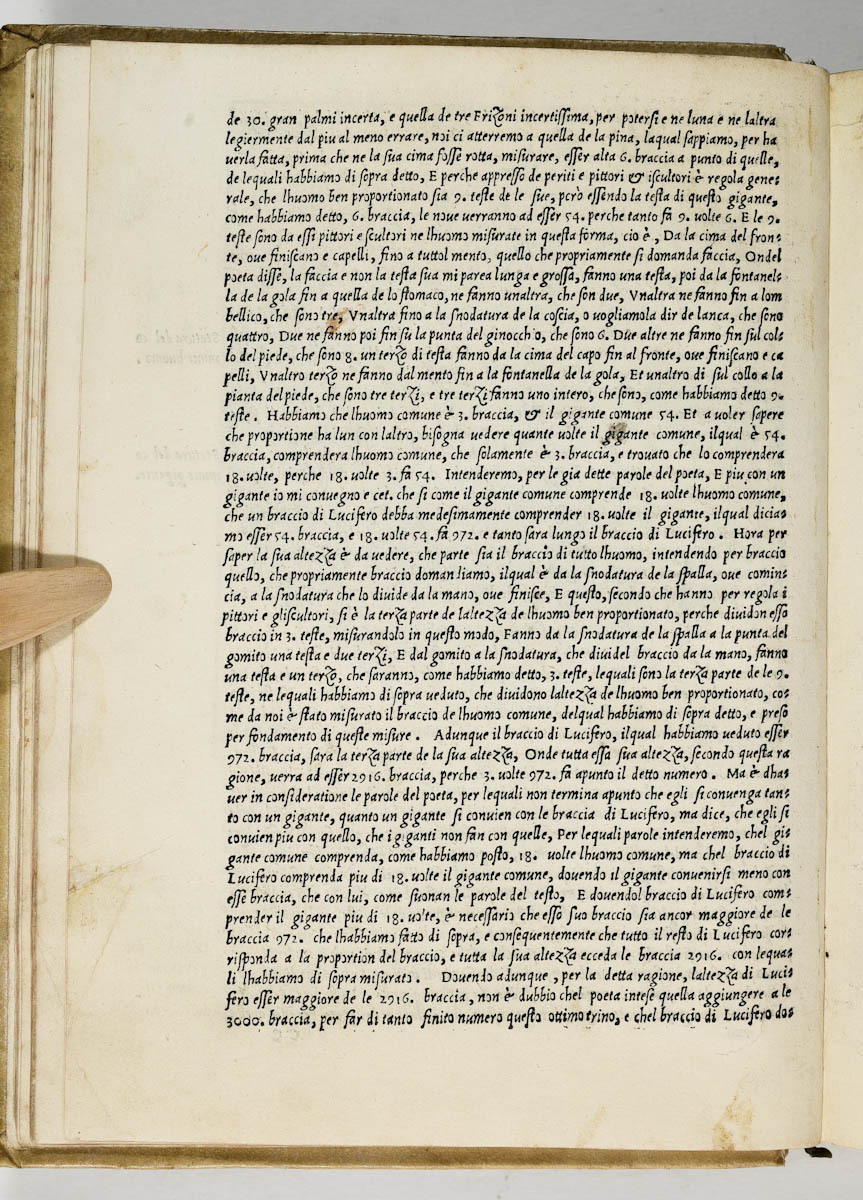 de 30. gran palmi incerta, e quella de tre Frizoni incertissima, per potersi e ne luna e ne laltra
legiermente dal piu al meno errare, noi ci atterremo a quella de la pina, laqual sappiamo, per ha
uerla fatta, prima che ne la sua cima fosse rotta, misurare, esser alta 6. braccia a punto di quelle,
de lequali habbiamo di sopra detto, E perche appresso de periti e pittori & iscultori è regola gene-
rale, che lhuomo ben proportionato sia 9. teste de le sue, però essendo la testa di questo gigante,
come habbiamo detto, 6. braccia, le noue uerranno ad esser 54. perche tanto fa 9. uolte 6. E le 9.
teste sono da essi pittori e scultori ne lhuomo misurate in questa forma, cio è, Da la cima del fron-
te, oue finiscano e capelli, fino a tuttol mento, quello che propriamente si domanda faccia, Ondel
poeta disse, la faccia e non la testa sua mi parea lunga e grossa, fanno una testa, poi da la fontanel-
la de la gola fin a quella de lo stomaco, ne fanno unaltra, che son due, Vnaltra ne fanno fin a lom
bellico, che sono tre, Vnaltra fino a la snodatura de la coscia, o uogliamola dir de lanca, che sono
quattro, Due ne fanno poi fin su la punta del ginocchio, che sono 6. Due altre ne fanno fin sul col-
lo del piede, che sono 8. un terzo di testa fanno da la cima del capo fin al fronte, oue finiscano e ca
pelli, Vnaltro terzo ne fanno dal mento fin a la fontanella de la gola, Et unaltro di sul collo a la
pianta del piede, che sono tre terzi, e tre terzi fanno uno intero, che sono, come habbiamo detto 9.
teste. Habbiamo che lhuomo comune è 3. braccia, & il gigante comune 54. Et a uoler sapere
che proportione ha lun con laltro, bisogna uedere quante uolte il gigante comune, ilqual è 54.
braccia, comprendera lhuomo comune, che solamente è 3. braccia, e trouato che lo comprendera
18. uolte, perche 18. uolte 3. fa 54. Intenderemo, per le gia dette parole del poeta, E piu con un
gigante io mi conuegno e cet. che si come il gigante comune comprende 18. uolte lhuomo comune,
che un braccio di Lucifero debba medesimamente comprender 18. uolte il gigante, ilqual dicia-
mo esser 54. braccia, e 18. uolte 54. fà 972. e tanto sara lungo il braccio di Lucifero. Hora per
saper la sua altezza è da uedere, che parte sia il braccio di tutto lhuomo, intendendo per braccio
quello, che propriamente braccio domandiamo, ilqual è da la snodatura de la spalla, oue comin-
cia, a la snodatura che lo diuide da la mano, oue finisce, E questo, secondo che hanno per regola i
pittori e gliscultori, si è la terza parte de laltezza de lhuomo ben proportionato, perche diuidon esso
braccio in 3. teste, misurandolo in questo modo, Fanno da la snodatura de la spalla a la punta del
gomito una testa e due terzi, E dal gomito a la snodatura, che diuidel braccio da la mano, fanno
una testa e un terzo, che saranno, come habbiamo detto, 3. teste, lequali sono la terza parte de le 9.
teste, ne lequali habbiamo di sopra ueduto, che diuidono laltezza de lhuomo ben proportionato, co-
me da noi è stato misurato il braccio de lhuomo comune, delqual habbiamo di sopra detto, e preso
per fondamento di queste misure. Adunque il braccio di Lucifero, ilqual habbiamo ueduto esser
972. braccia, sara la terza parte de la sua altezza, Onde tutta essa sua altezza, secondo questa ra
gione, uerra ad esser 2916. braccia, perche 3. uolte 972. fà apunto il detto numero. Ma è dha-
uer in consideratione le parole del poeta, per lequali non termina apunto che egli si conuenga tan-
to con un gigante, quanto un gigante si conuien con le braccia di Lucifero, ma dice, che egli si
conuien piu con quello, che i giganti non fan con quelle, Per lequali parole intenderemo, chel gi-
gante comune comprenda, come habbiamo posto, 18. uolte lhuomo comune, ma chel braccio di
Lucifero comprenda piu di 18. uolte il gigante comune, douendo il gigante conuenirsi meno con
esse braccia, che con lui, come suonan le parole del testo, E douendol braccio di Lucifero com-
prender il gigante piu di 18. uolte, è necessario che esso suo braccio sia ancor maggiore de le
braccia 972. che lhabbiamo fatto di sopra, e consequentemente che tutto il resto di Lucifero cor-
risponda a la proportion del braccio, e tutta la sua altezza ecceda le braccia 2916. con lequa-
li lhabbiamo di sopra misurato. Douendo adunque, per la detta ragione, laltezza di Luci-
fero esser maggiore de le 2916. braccia, non è dubbio chel poeta intese quella aggiungere a le
3000. braccia, per far di tanto finito numero questo ottimo trino, e chel braccio di Lucifero do-